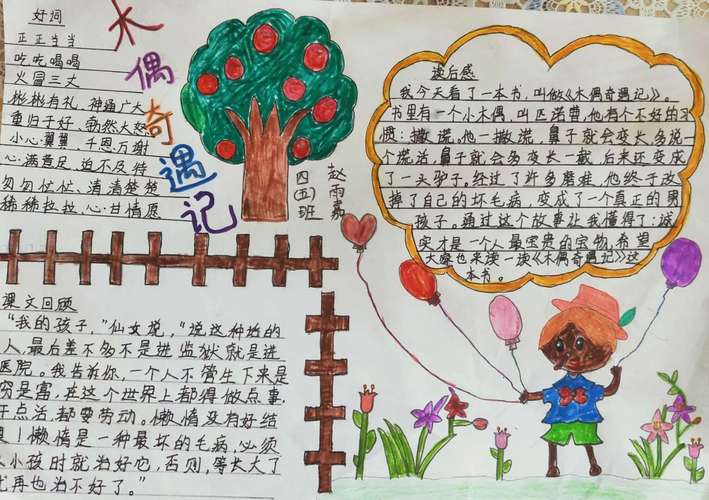 好词
正正当当
吃吃喝喝
火冒三丈
彬彬有礼、神通广大
重归于好、勃然大怒
小心翼翼、千恩万谢
心满意足、迫不及待
匆匆忙忙、清清楚楚
稀稀拉拉、心甘情愿
木偶奇遇记
四(五)班
赵雨嘉
读后感
我今天看了一本书，叫做《木偶奇遇记》。
书里有一个小木偶，叫匹诺曹，他有个不好的习
惯：撒谎。他一撒谎，鼻子就会变长多说
一个谎话，鼻子就会多变长一截，后来还变成
了一头驴子。经过了许多磨难，他终于改
掉了自己的坏毛病，变成了一个真正的男
孩子。通过这个故事让我懂得了：诚
实才是一个人最宝贵的宝物，希望
大家也来读一读《木偶奇遇记》这
本书。
课文回顾
“我的孩子，”仙女说，”说这种话的
人，最后差不多不是进监狱就是进
医院。我告诉你，一个人不管生下来是
穷是富，在这个世界上都得做点事，
干点活，都要劳动。懒惰没有好结
果！懒惰是一种最坏的毛病，必须
从小孩时就治好它，否则，等长大了
就再也治不好了。”